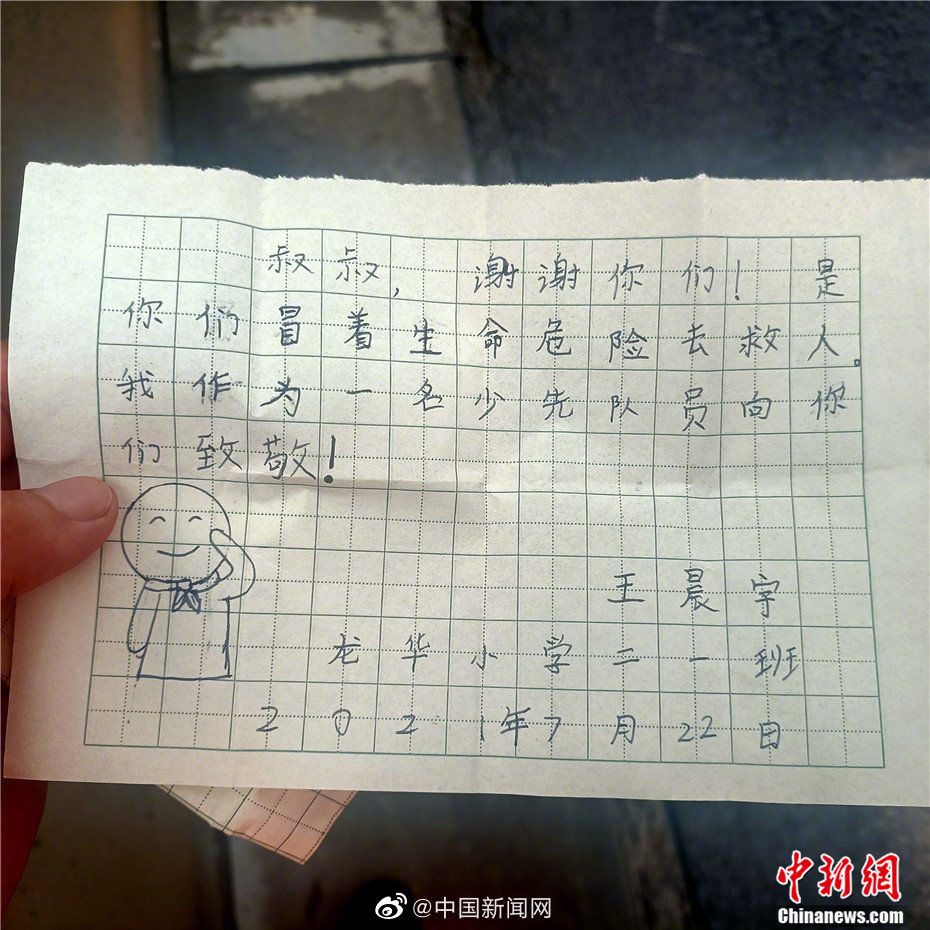 叔叔，谢谢你们！是
你们冒着生命危险去救人。
我作为一名少先队员向你
们致敬！
王晨宇
龙华小学二一班
2021年7月22日
中新网
Chinanews.com
@中国新闻网